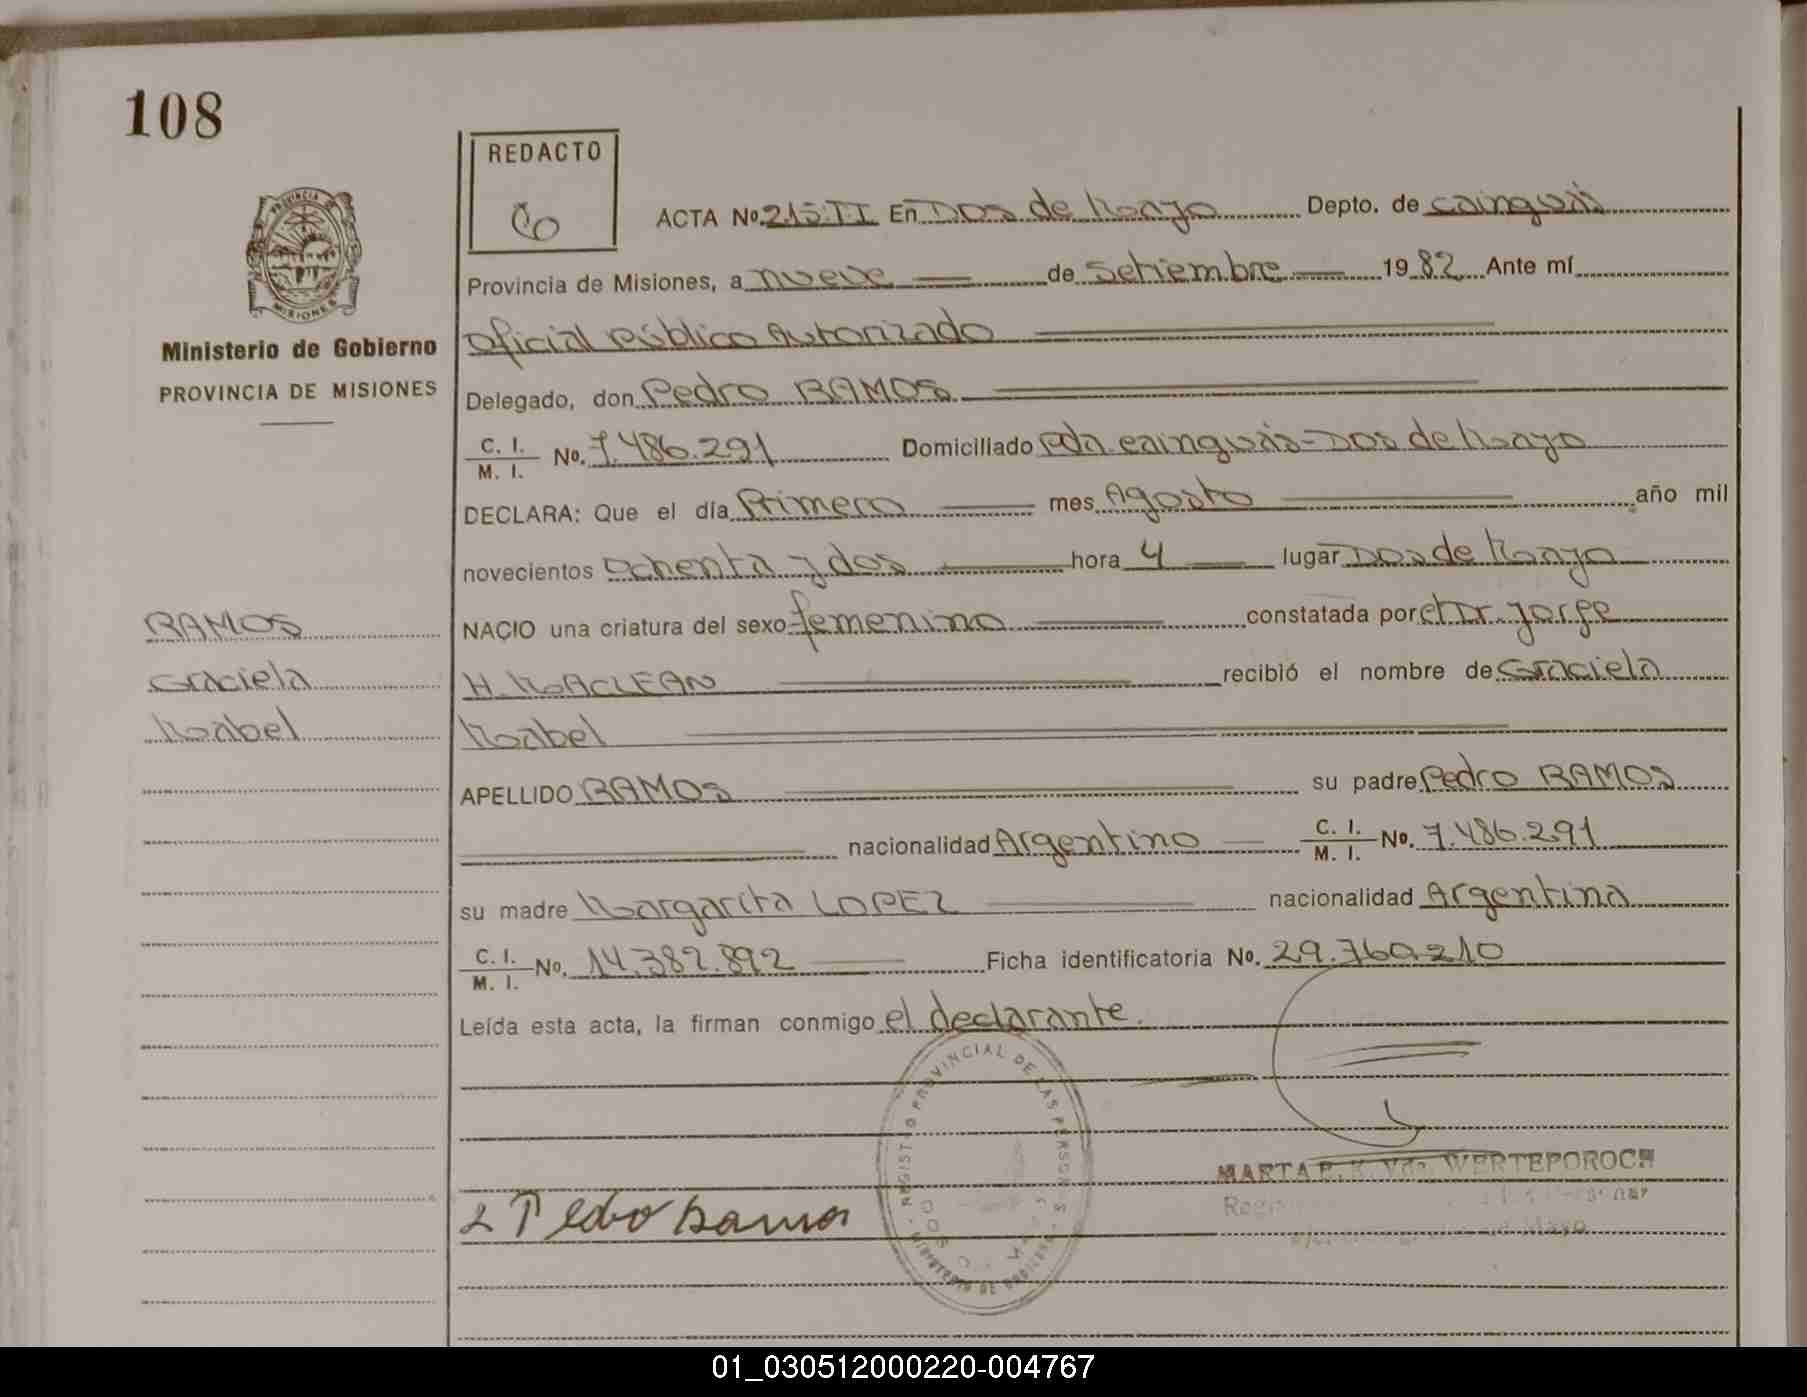 108
REDACTO
ACTA No. 215 II En Dos de Mayo Depto. de Cainguás
Provincia de Misiones, a nueve de Setiembre 1982 Ante mí
Oficial Público Autorizado
Ministerio de Gobierno
PROVINCIA DE MISIONES
Delegado, don Pedro RAMOS
C. I. / M. I. No. 7.486.291 Domiciliado Pda. Cainguás-Dos de Mayo
DECLARA: Que el día Primero mes Agosto año mil
novecientos ochenta y dos hora 4 lugar Dos de Mayo
NACIO una criatura del sexo femenino constatada por el Dr. Jorge
H. MACLEAN recibió el nombre de Graciela
Mabel
RAMOS
Graciela
Mabel
APELLIDO RAMOS su padre Pedro RAMOS
nacionalidad Argentino C. I. / M. I. No. 7.486.291
su madre Margarita LOPEZ nacionalidad Argentina
C. I. / M. I. No. 14.382.892 Ficha identificatoria No. 29.760.210
Leída esta acta, la firman conmigo el declarante.
REGISTRO PROVINCIAL DE LAS PERSONAS
MINISTERIO DE GOBIERNO
MARTA Vda. WERTEPOROCH
Pedro Ramos
01_030512000220-004767